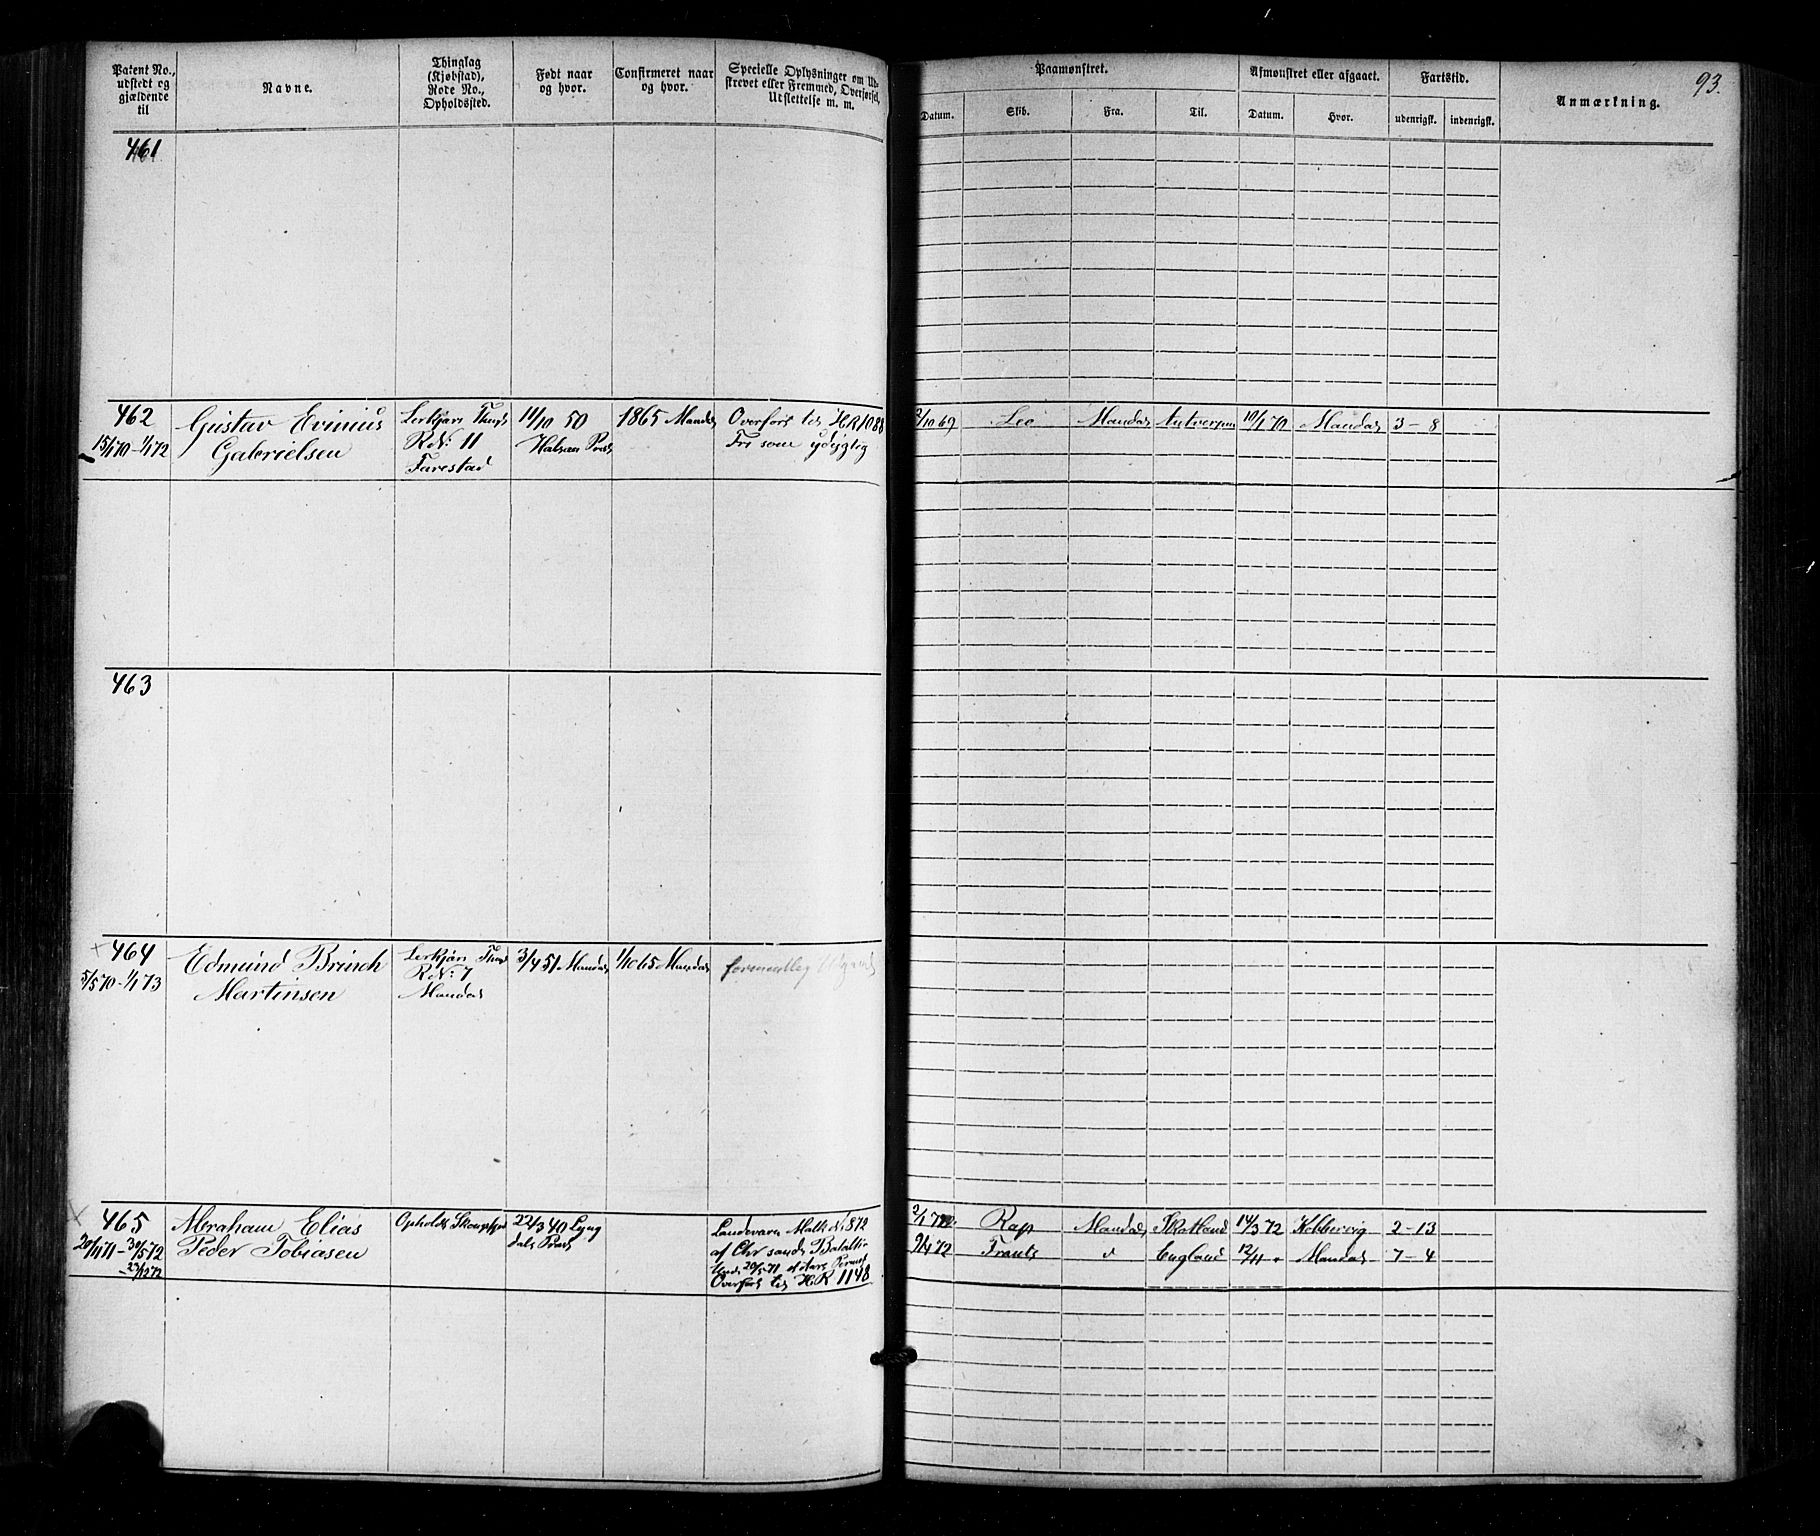 Patent No., udstedt og gjældende til
Navne.
Thinglag (Kjøbstad), Rode No., Opholdssted.
Født naar og hvor.
Confirmeret naar og hvor.
Specielle Oplysninger om Udstrevet eller Fremmed, Overførsel, Udslettelse m. m.
Paamønstret.
Afmønstret eller afgaaet.
Fartstid.
Anmærkning.
93.
Datum.
Skib.
Fra.
Til.
Datum.
Hvor.
udenrigsk.
indenrigsk.
461
462
15/1 70 - 1/1 72
Gustav Evinius
Gabrielsen
Lerkjærs Thingl
R No: 11
Farestad
11/10 50
Halsaa Præst
1865 Mandal
Overført til HR 1088
Fri som udygtig
2/10 69
Leo
Mandal
Antverpen
10/1 70
Mandal
3 - 8
463
464
5/5 70 - 1/1 73
Edmund Brinch
Martinsen
Lerkjærs Thingl
R No: 7
Mandal
3/4 51 Mandal
1/10 65 Mandal
formentlig
465
20/1 71 - 30/5 72
- 23/12 72
Abraham Elias
Peder Tobiasen
Opholds
22/3 40 Lyng
dals Præst
Landeværn Matk No 872
af Chr sands Bataillon
Overført til HR 1148
2/1 72
Rap
Mandal
Skotland
14/3 72
Kobbervig
2 - 13
9/4 72
Frants
"
England
12/11 "
Mandal
7 - 4